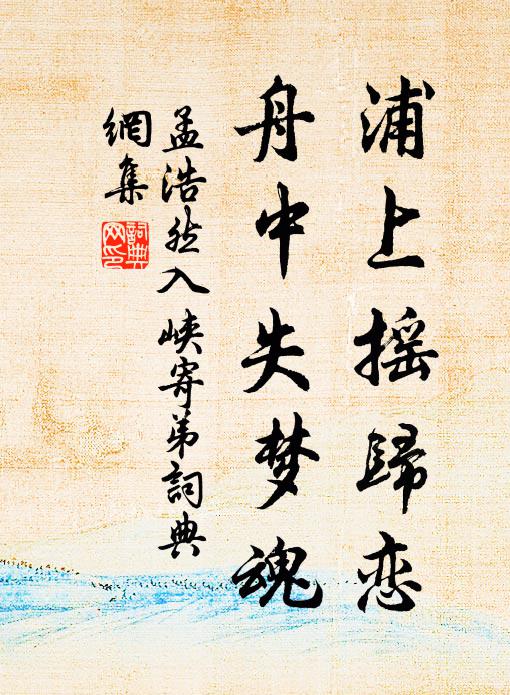 浦上摇歸恋
舟中失梦魂
孟浩然入峡寄弟詞典
網集
詞典
网印